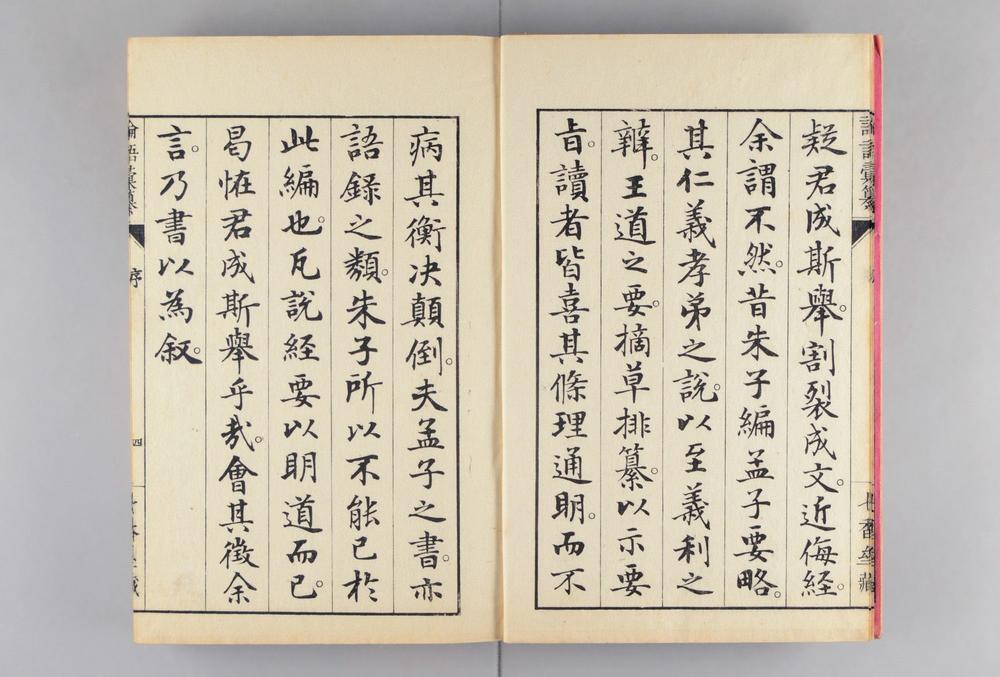 論語彙纂
疑君成斯舉。割裂成文。近侮經。
余謂不然。昔朱子編孟子要略。
其仁義孝弟之說。以至義利之
辨。王道之要。摘草排纂。以示要
旨。讀者皆喜其條理通明。而不
病其衡决顛倒。夫孟子之書。亦
語錄之類。朱子所以不能已於
此編也。凡說經要以明道而已。
曷恠君成斯舉乎哉。會其徵余
言。乃書以為叙。
論語彙纂
序
四